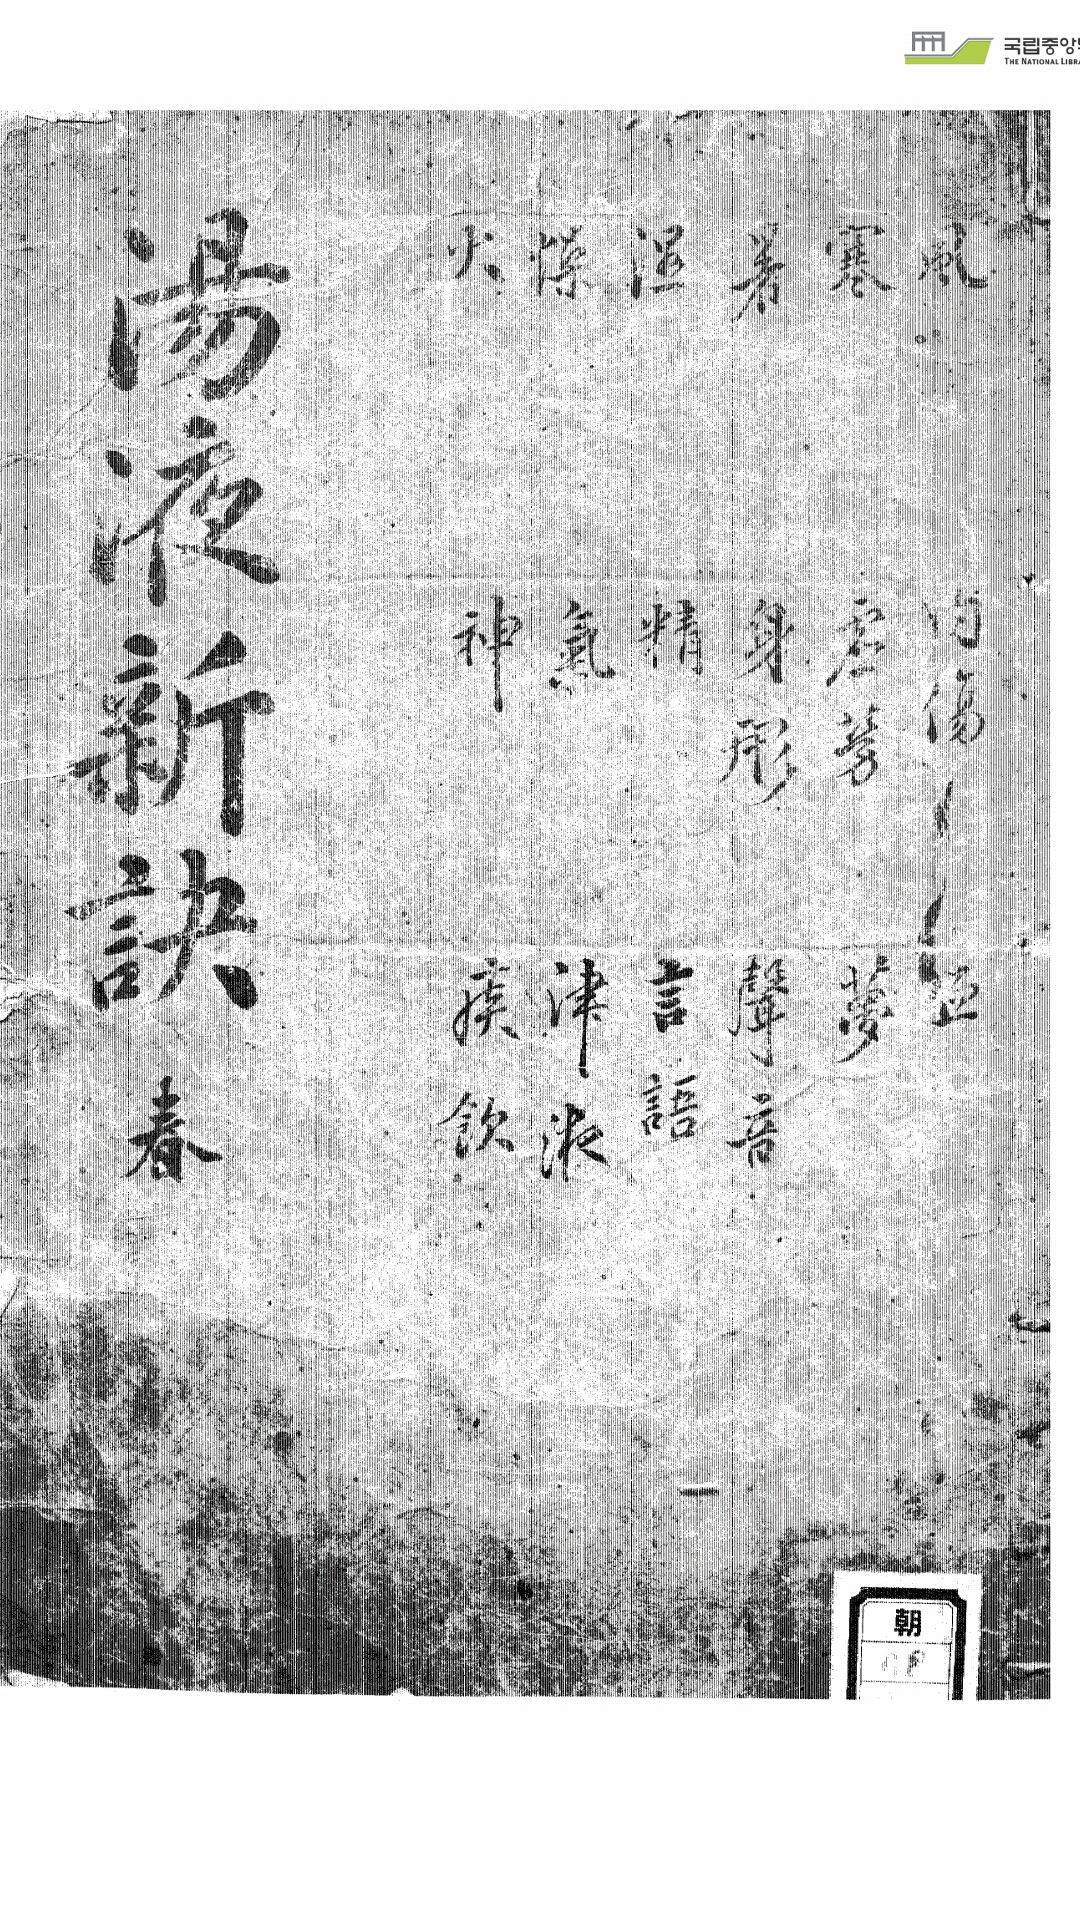 국립중앙
THE NATIONAL LIBRA
風 寒 暑 濕 燥 火
內傷 虛勞 身形 精 氣 神
血 夢 聲音 言語 津液 痰飮
湯液新訣 春
朝